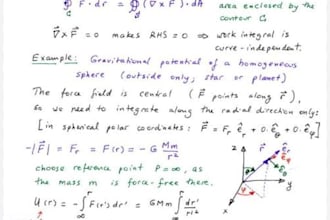 ∮ F⃗ · dr⃗ = ∯ (∇×F⃗) · dA⃗ area enclosed by the
contour C.
∇×F⃗ = 0 makes RHS = 0 ⇒ work integral is
curve-independent.
Example: Gravitational potential of a homogeneous
sphere (outside only; star or planet)
The force field is central (F⃗ points along r⃗),
so we need to integrate along the radial direction only:
[in spherical polar coordinates: F⃗ = F_r ê_r + 0·ê_θ + 0·ê_φ]
-|F⃗| = F_r = F(r) = -G Mm/r²
choose reference point P = ∞, as
the mass m is force-free there.
U(r) = -∫ F(r')dr' = GMm ∫ dr'/r'²
z
r⃗
ê_r
ê_φ
ê_θ
y
x